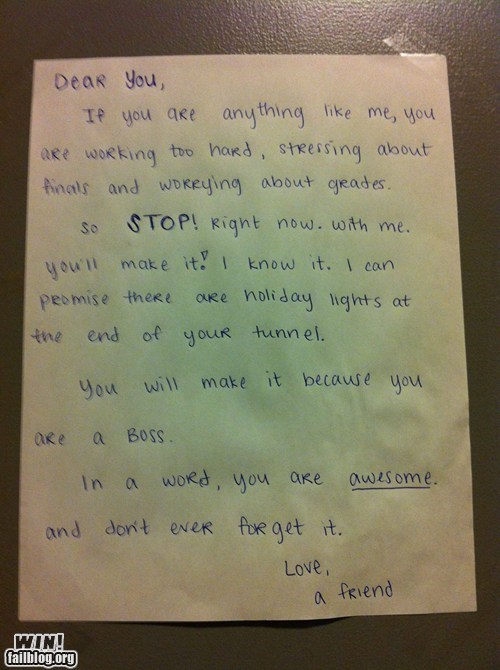 Dear You,
If you are anything like me, you
are working too hard, stressing about
finals and worrying about grades.
So STOP! Right now. with me.
you'll make it! I know it. I can
promise there are holiday lights at
the end of your tunnel.
You will make it because you
are a BOSS.
In a word, you are awesome.
and don't ever forget it.
Love,
a friend
WIN!
failblog.org